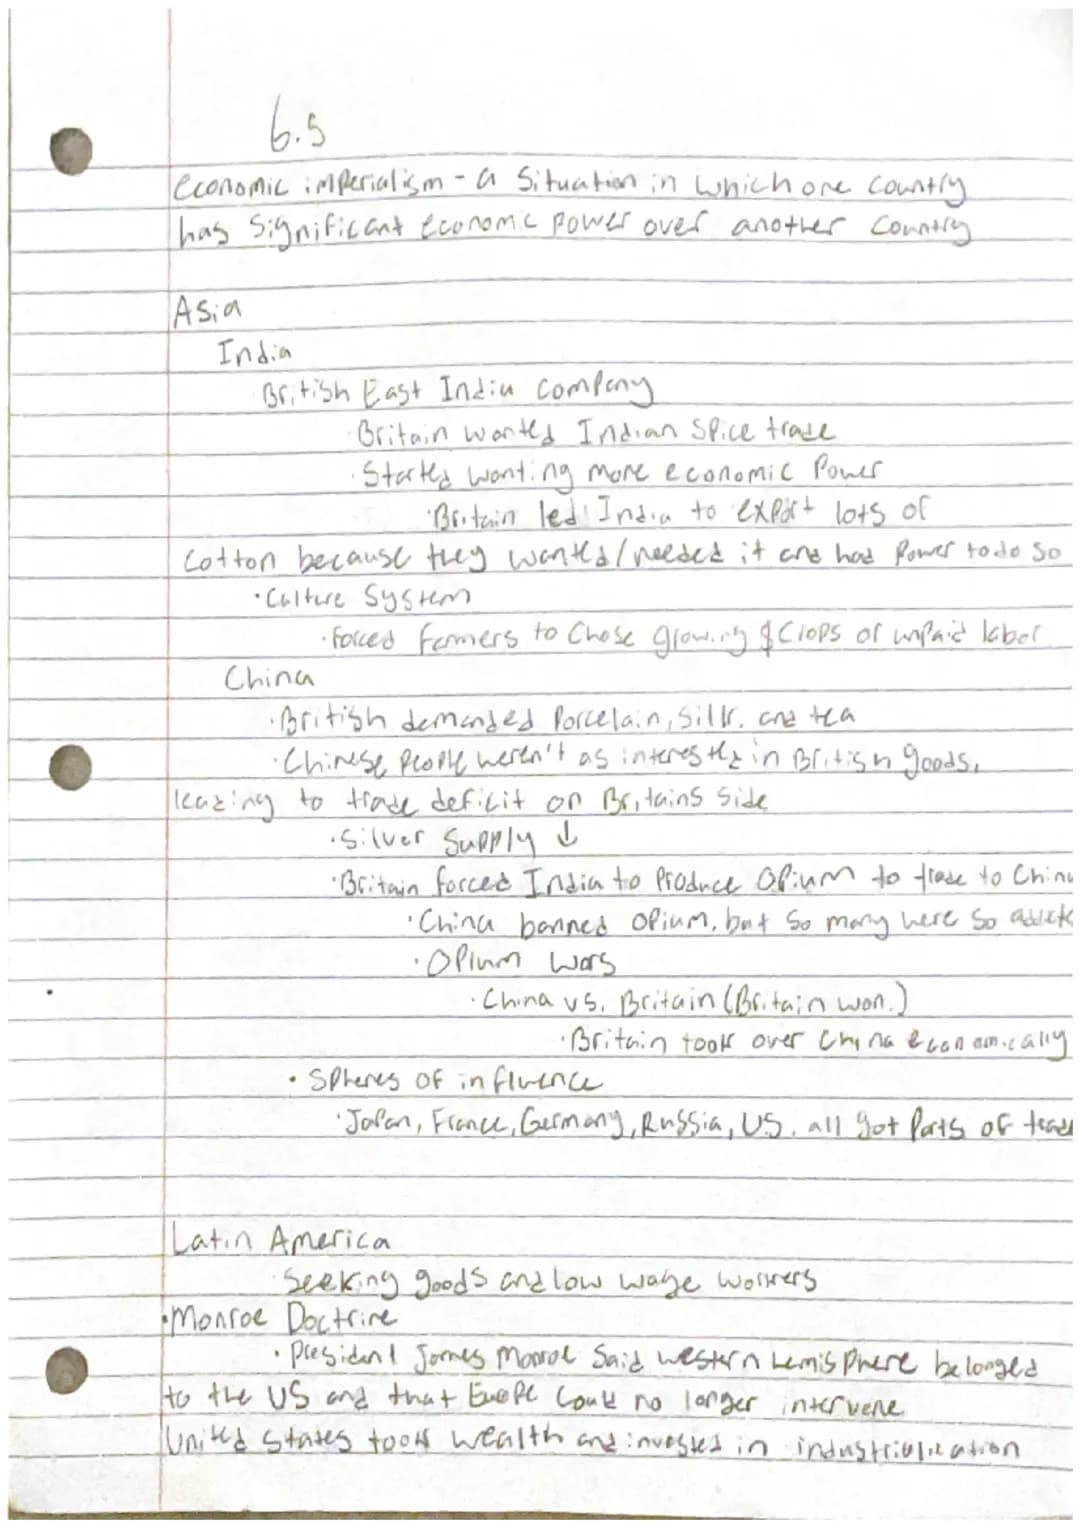 6.5
economic imperialism - a situation in which one country
has significant economic power over another country
Asia
India
British East India company
Britain wanted Indian spice trade
Started wanting more economic Power
Britain led India to export lots of
cotton because they wanted/needed it and had power to do so
Culture System
Forced farmers to chose growing $ crops or unpaid labor
China
British demanded Porcelain, silk, and tea
Chinese people weren't as interested in British goods,
leading to trade deficit on Britains side
Silver supply ↓
Britain forced India to produce opium to trade to China
China banned opium, but so many were so
Opium wars
China vs. Britain (Britain won.)
Britain took over china economically
Spheres of influence
Japan, France, Germany, Russia, US. all got parts of
Latin America
Seeking goods and low wage workers
Monroe Doctrine
President James Monroe said western hemisphere belonged
to the US and that Europe could no longer intervene
United States took wealth and invested in industrialization